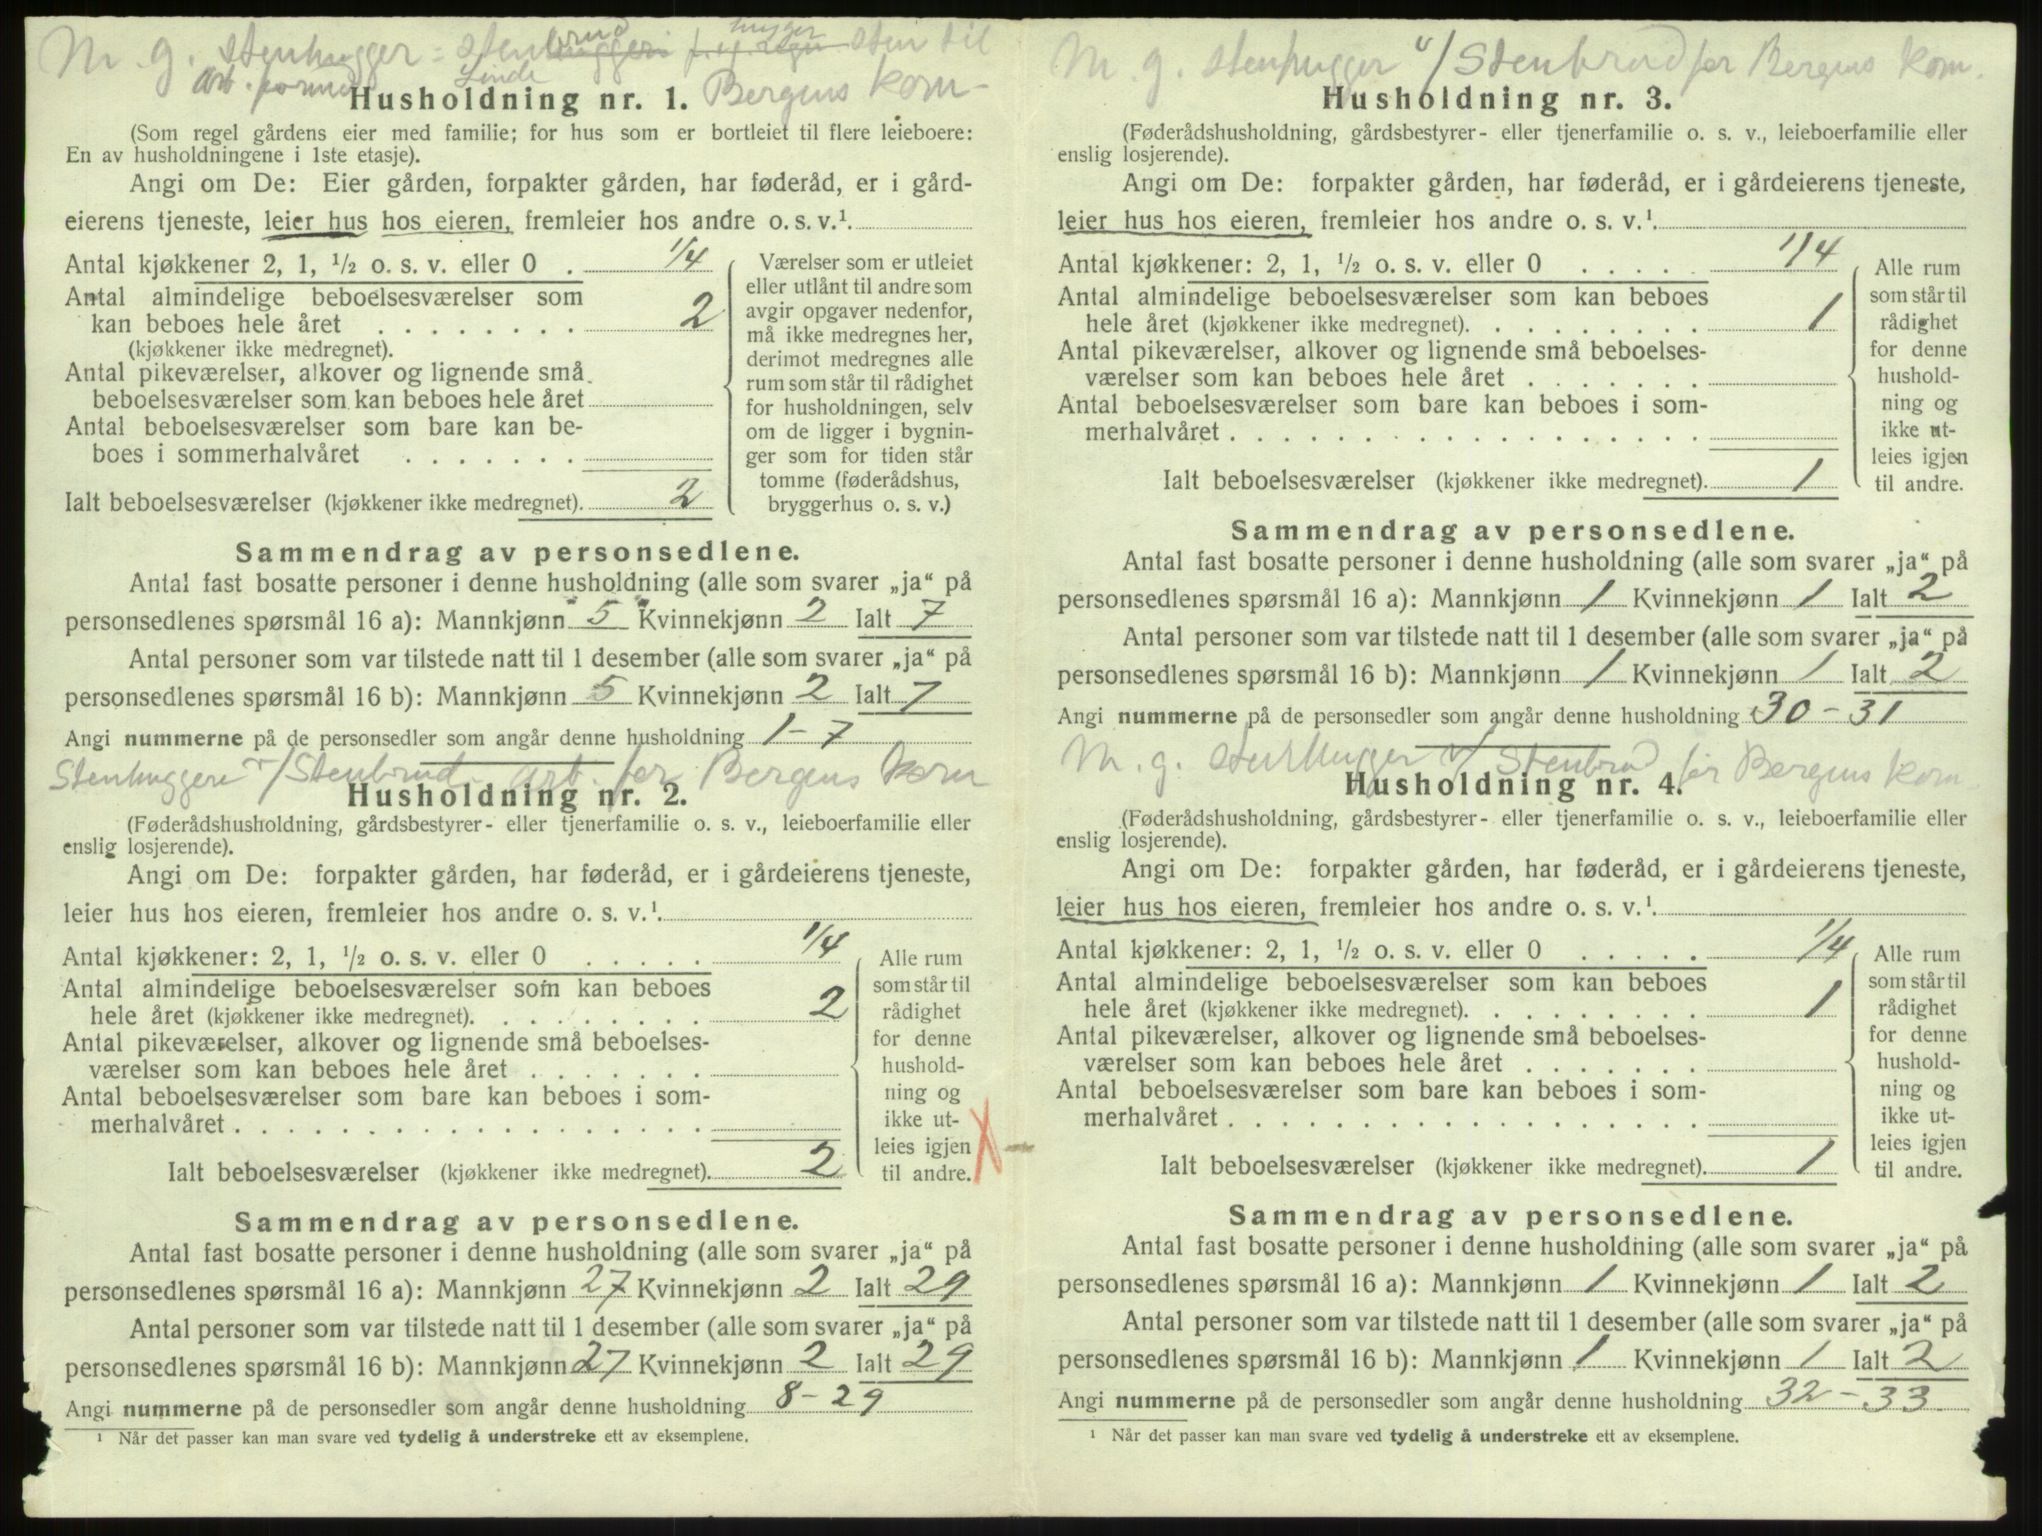 M. g. stenhugger = stenbrud hugger sten til
arb. formann Linde Bergens kom-
Husholdning nr. 1.
(Som regel gårdens eier med familie; for hus som er bortleiet til flere leieboere:
En av husholdningene i 1ste etasje).
Angi om De: Eier gården, forpakter gården, har føderåd, er i gård-
eierens tjeneste, leier hus hos eieren, fremleier hos andre o. s. v.¹.
Antal kjøkkener 2, 1, ½ o. s. v. eller 0 . 1/4
Antal almindelige beboelsesværelser som
kan beboes hele året . . . . . . . . 2
(kjøkkener ikke medregnet).
Antal pikeværelser, alkover og lignende små
beboelsesværelser som kan beboes hele året
Antal beboelsesværelser som bare kan be-
boes i sommerhalvåret . . . . . . .
Ialt beboelsesværelser (kjøkkener ikke medregnet). 2
Værelser som er utleiet
eller utlånt til andre som
avgir opgaver nedenfor,
må ikke medregnes her,
derimot medregnes alle
rum som står til rådighet
for husholdningen, selv
om de ligger i bygnin-
ger som for tiden står
tomme (føderådshus,
bryggerhus o. s. v.)
Sammendrag av personsedlene.
Antal fast bosatte personer i denne husholdning (alle som svarer „ja“ på
personsedlenes spørsmål 16 a): Mannkjønn 5 Kvinnekjønn 2 Ialt 7
Antal personer som var tilstede natt til 1 desember (alle som svarer „ja“ på
personsedlenes spørsmål 16 b): Mannkjønn 5 Kvinnekjønn 2 Ialt 7
Angi nummerne på de personsedler som angår denne husholdning 1-7
Stenhuggere v/Stenbrud arb. for Bergens kom
Husholdning nr. 2.
(Føderådshusholdning, gårdsbestyrer- eller tjenerfamilie o. s. v., leieboerfamilie eller
enslig losjerende).
Angi om De: forpakter gården, har føderåd, er i gårdeierens tjeneste,
leier hus hos eieren, fremleier hos andre o. s. v.¹.
Antal kjøkkener: 2, 1, ½ o. s. v. eller 0 . . . . . 1/4
Antal almindelige beboelsesværelser som kan beboes
hele året (kjøkkener ikke medregnet). . . . . . . . . 2
Antal pikeværelser, alkover og lignende små beboelses-
værelser som kan beboes hele året . . . . . . .
Antal beboelsesværelser som bare kan beboes i som-
merhalvåret . . . . . . . . . . . . . . . . . .
Ialt beboelsesværelser (kjøkkener ikke medregnet). 2
Alle rum
som står til
rådighet
for denne
hushold-
ning og
ikke ut-
leies igjen
til andre.
Sammendrag av personsedlene.
Antal fast bosatte personer i denne husholdning (alle som svarer „ja“ på
personsedlenes spørsmål 16 a): Mannkjønn 27 Kvinnekjønn 2 Ialt 29
Antal personer som var tilstede natt til 1 desember (alle som svarer „ja“ på
personsedlenes spørsmål 16 b): Mannkjønn 27 Kvinnekjønn 2 Ialt 29
Angi nummerne på de personsedler som angår denne husholdning 8-29
¹ Når det passer kan man svare ved tydelig å understreke ett av eksemplene.
M. g. stenhugger v/Stenbrud for Bergens kom.
Husholdning nr. 3.
(Føderådshusholdning, gårdsbestyrer- eller tjenerfamilie o. s. v., leieboerfamilie eller
enslig losjerende).
Angi om De: forpakter gården, har føderåd, er i gårdeierens tjeneste,
leier hus hos eieren, fremleier hos andre o. s. v.¹.
Antal kjøkkener: 2, 1, ½ o. s. v. eller 0 . . . . . 1/4
Antal almindelige beboelsesværelser som kan beboes
hele året (kjøkkener ikke medregnet). . . . . . . . . 1
Antal pikeværelser, alkover og lignende små beboelses-
værelser som kan beboes hele året . . . . . . .
Antal beboelsesværelser som bare kan beboes i som-
merhalvåret . . . . . . . . . . . . . . . . . .
Ialt beboelsesværelser (kjøkkener ikke medregnet). 1
Alle rum
som står til
rådighet
for denne
hushold-
ning og
ikke ut-
leies igjen
til andre.
Sammendrag av personsedlene.
Antal fast bosatte personer i denne husholdning (alle som svarer „ja“ på
personsedlenes spørsmål 16 a): Mannkjønn 1 Kvinnekjønn 1 Ialt 2
Antal personer som var tilstede natt til 1 desember (alle som svarer „ja“ på
personsedlenes spørsmål 16 b): Mannkjønn 1 Kvinnekjønn 1 Ialt 2
Angi nummerne på de personsedler som angår denne husholdning 30-31
M. g. stenhugger v/ Stenbrud for Bergens kom
Husholdning nr. 4.
(Føderådshusholdning, gårdsbestyrer- eller tjenerfamilie o. s. v., leieboerfamilie eller
enslig losjerende).
Angi om De: forpakter gården, har føderåd, er i gårdeierens tjeneste,
leier hus hos eieren, fremleier hos andre o. s. v.¹.
Antal kjøkkener: 2, 1, ½ o. s. v. eller 0 . . . . . 1/4
Antal almindelige beboelsesværelser som kan beboes
hele året (kjøkkener ikke medregnet). . . . . . . . . 1
Antal pikeværelser, alkover og lignende små beboelses-
værelser som kan beboes hele året . . . . . . .
Antal beboelsesværelser som bare kan beboes i som-
merhalvåret . . . . . . . . . . . . . . . . . .
Ialt beboelsesværelser (kjøkkener ikke medregnet). 1
Alle rum
som står til
rådighet
for denne
hushold-
ning og
ikke ut-
leies igjen
til andre.
Sammendrag av personsedlene.
Antal fast bosatte personer i denne husholdning (alle som svarer „ja“ på
personsedlenes spørsmål 16 a): Mannkjønn 1 Kvinnekjønn 1 Ialt 2
Antal personer som var tilstede natt til 1 desember (alle som svarer „ja“ på
personsedlenes spørsmål 16 b): Mannkjønn 1 Kvinnekjønn 1 Ialt 2
Angi nummerne på de personsedler som angår denne husholdning 32-33
¹ Når det passer kan man svare ved tydelig å understreke ett av eksemplene.